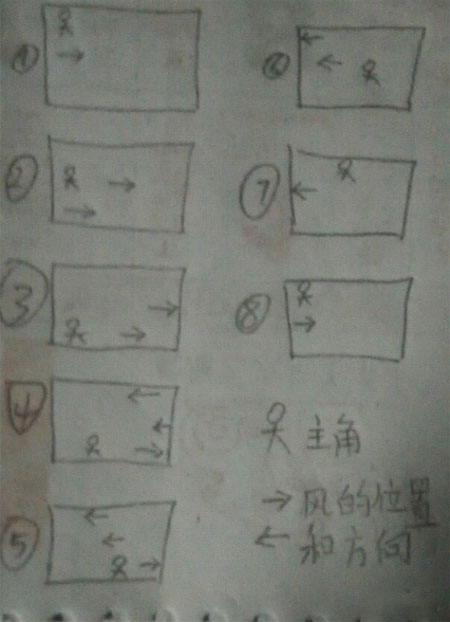 ①
②
③
④
⑤
⑥
⑦
⑧
主角
→风的位置
←和方向